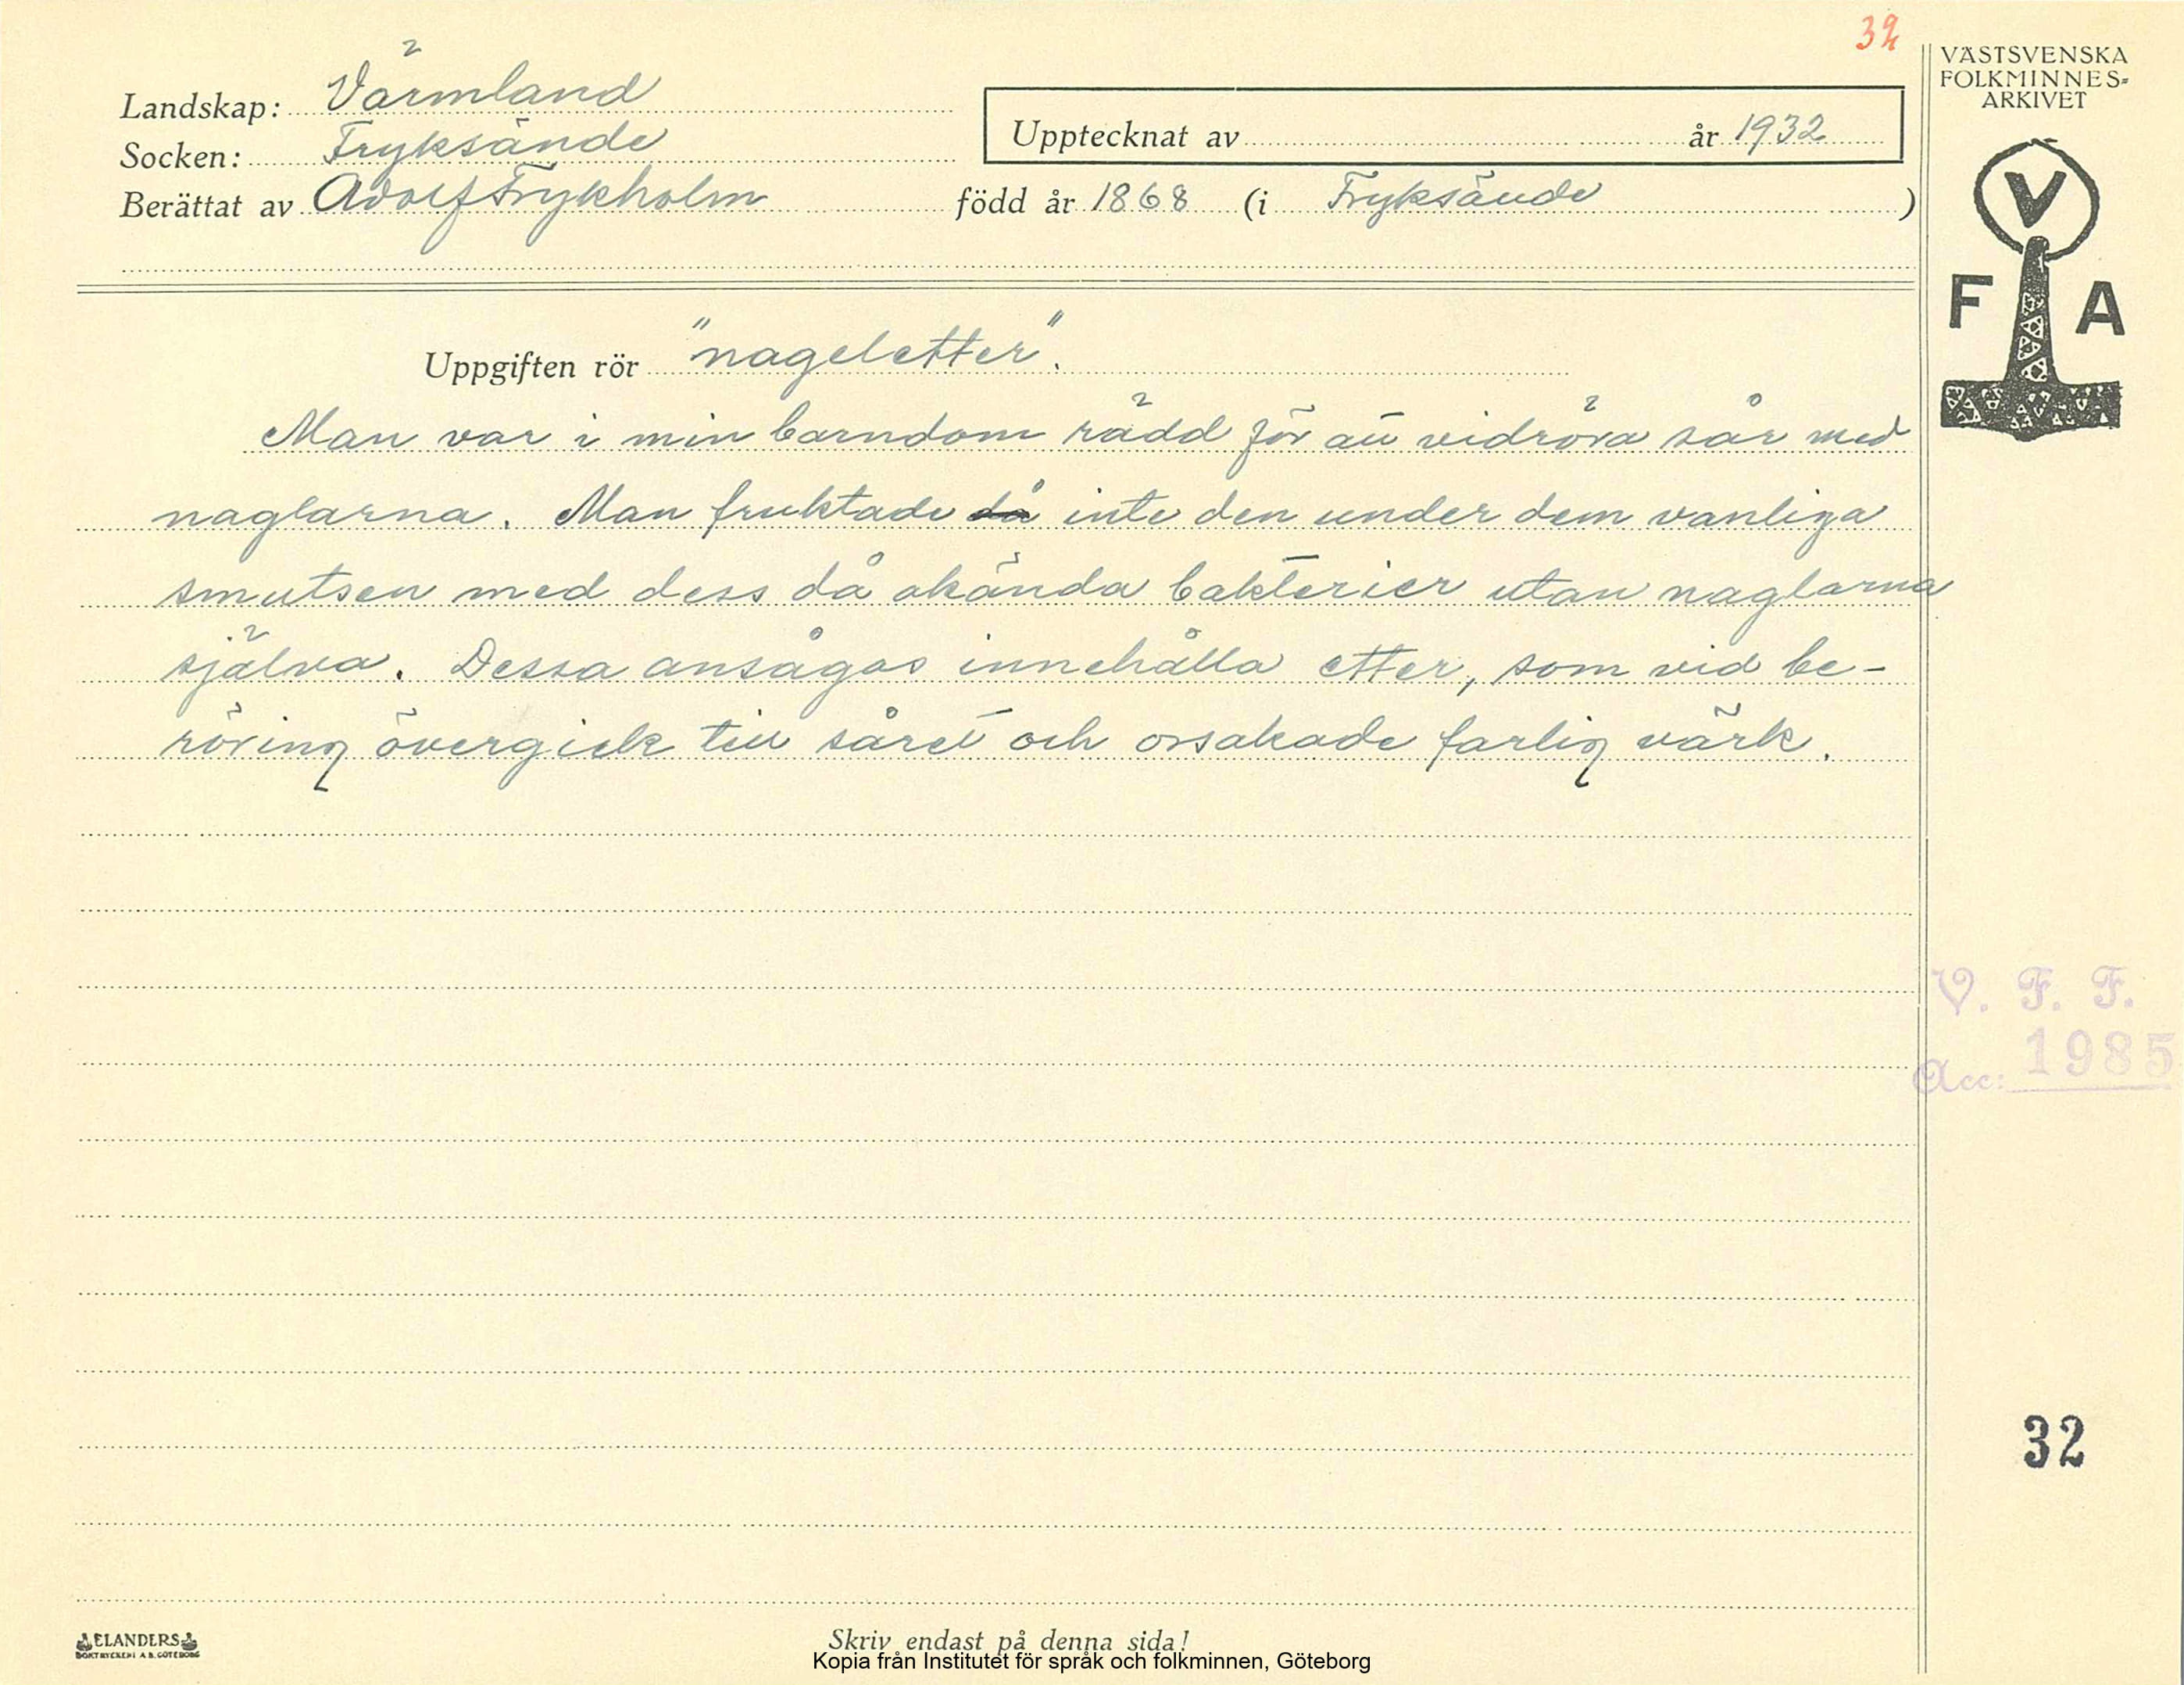 32
VÄSTSVENSKA
FOLKMINNES-
ARKIVET
Landskap: Värmland
Socken: Fryksände
Upptecknat av år 1932
Berättat av Adolf Frykholm född år 1868 (i Fryksände )
V
F A
Uppgiften rör "nageletter".
Man var i min barndom rädd för att vidröra sår med
naglarna. Man fruktade då inte den under dem vanliga
smutsen med dess då okända bakterier utan naglarna
själva. Dessa ansågos innehålla etter, som vid be-
röring övergick till såret och orsakade farlig värk.
V. F. F.
Acc: 1985
32
ELANDERS
BOKTRYCKERI A.B. GÖTEBORG
Skriv endast på denna sida!
Kopia från Institutet för språk och folkminnen, Göteborg